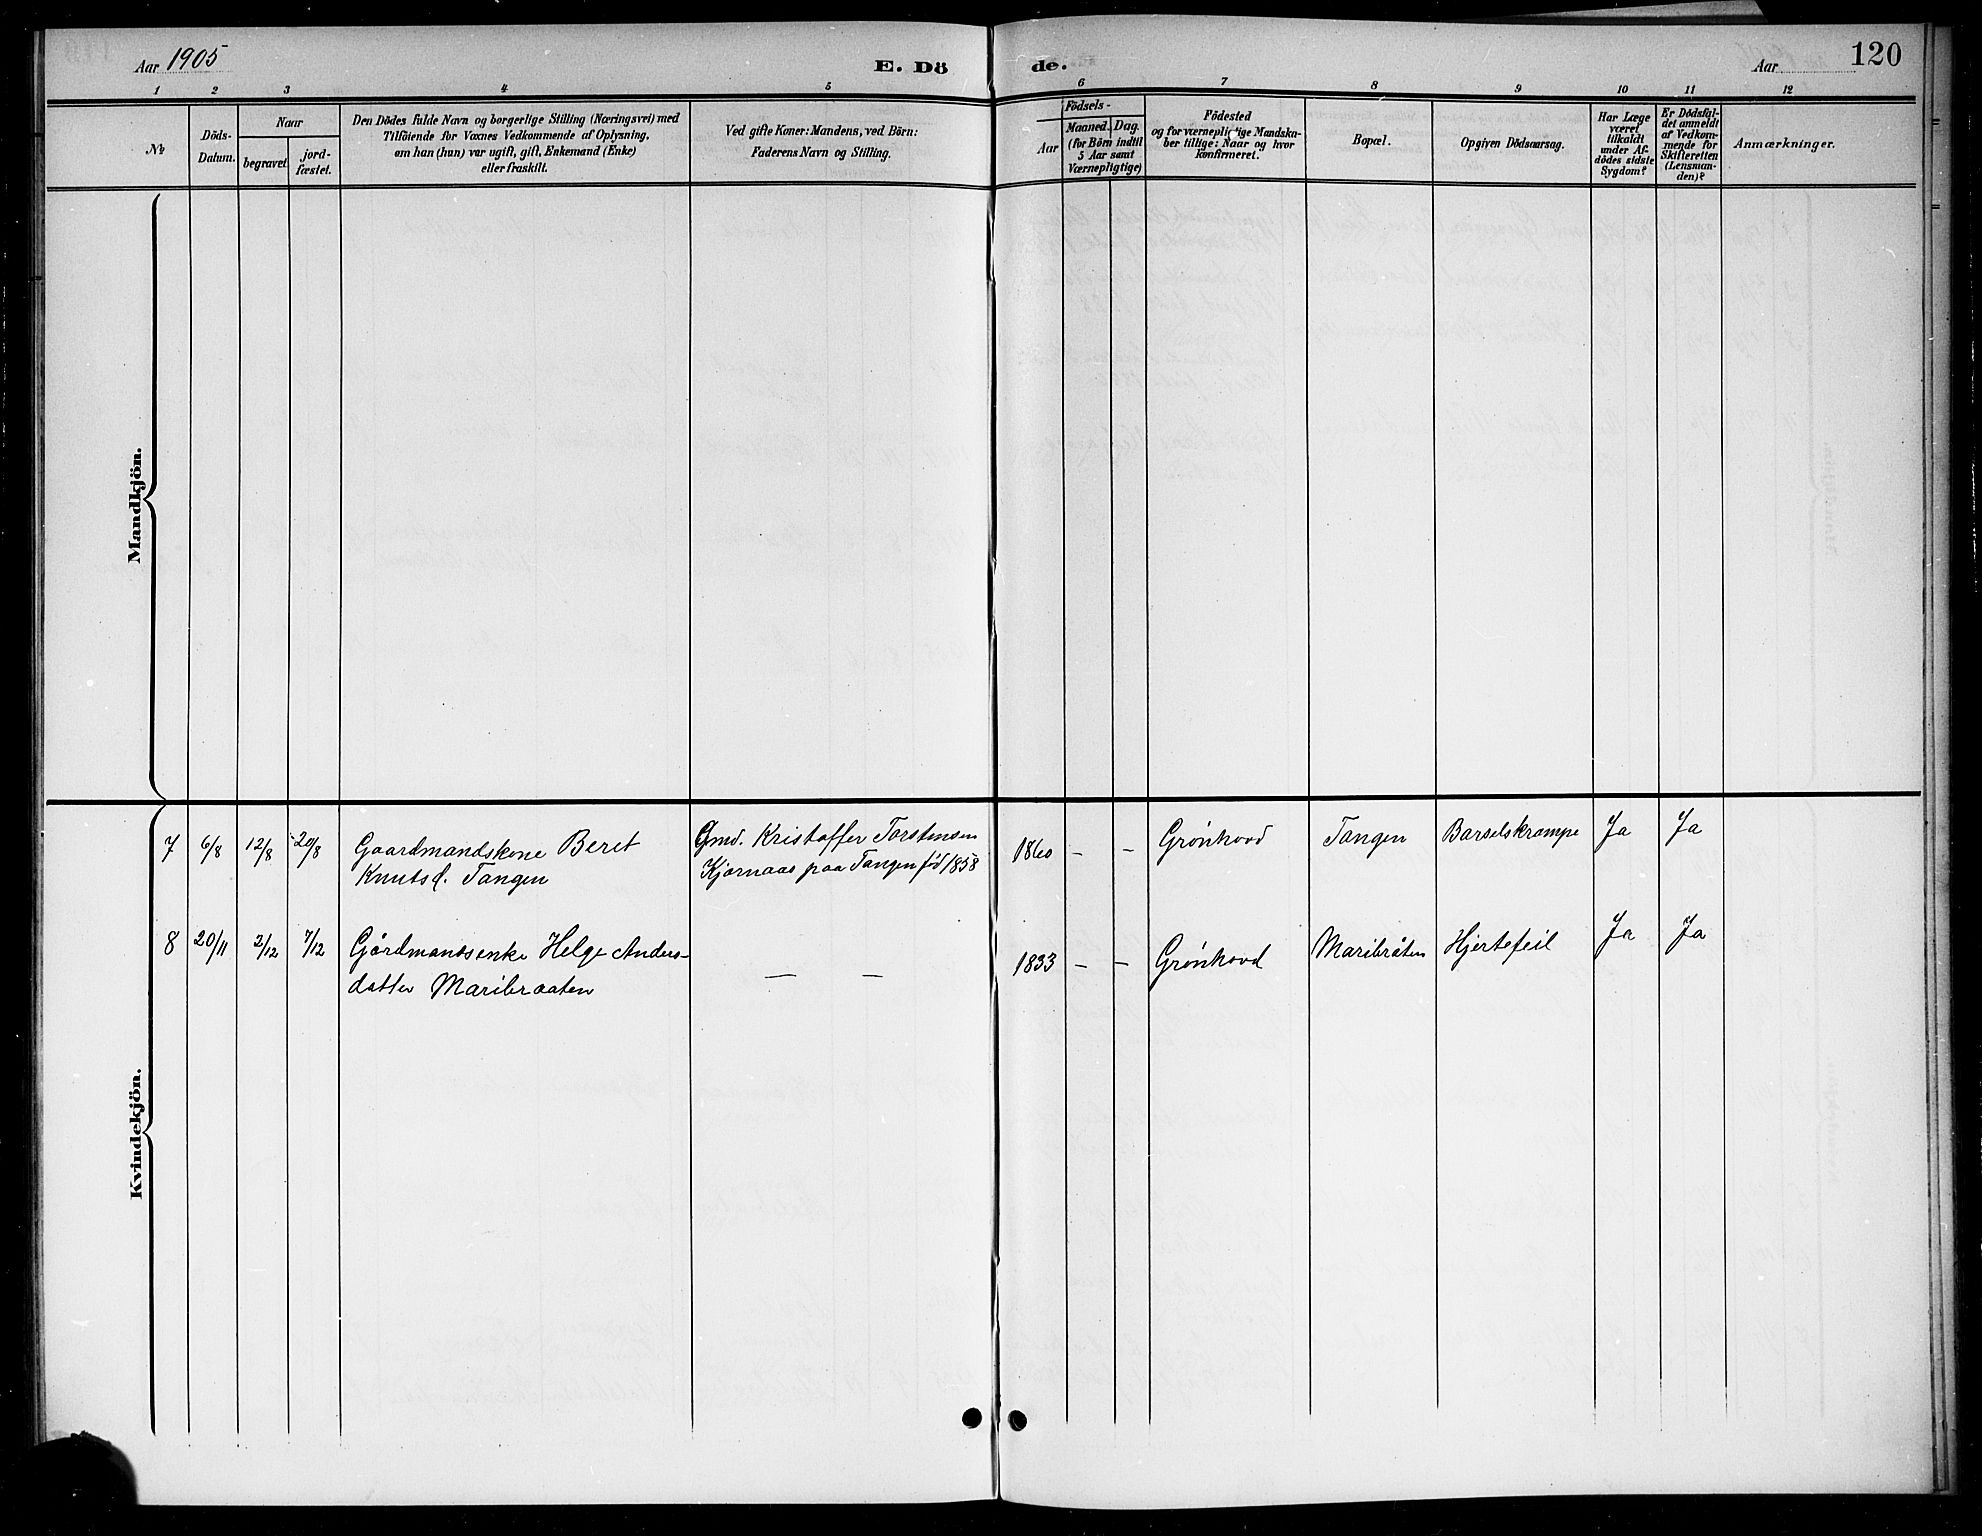 Aar 1905
E. Dö
de.
Aar
120
1 2 3 4 5 6 7 8 9 10 11 12
№
Döds-
Datum.
Naar
begravet.
jord-
fæstet.
Den Dödes fulde Navn og borgerlige Stilling (Næringsvei) med
Tilföiende for Voxnes Vedkommende af Oplysning,
om han (hun) var ugift, gift, Enkemand (Enke)
eller fraskilt.
Ved gifte Koner: Mandens, ved Börn:
Faderens Navn og Stilling.
Födsels-
Aar
Maaned.
Dag.
(for Börn indtil
5 Aar samt
Værnepligtige)
Födested
og for værnepligtige Mandska-
ber tillige: Naar og hvor
konfirmeret.
Bopæl.
Opgiven Dödsaarsag.
Har Læge
været
tilkaldt
under Af-
dödes sidste
Sygdom?
Er Dödsfal-
det anmeldt
af Vedkom-
mende for
Skifteretten
(Lensman-
den)?
Anmærkninger.
Mandkjön.
Kvindekjön.
7 6/8 12/8 20/8 Gaardmandskone Beret
Knutsd. Tangen
Gmd. Kristoffer Torstensen
Kjørnaas paa Tangen fød 1858
1860 – – Grønhovd Tangen Barselskrampe Ja Ja
8 20/11 2/12 7/12 Gårdmandsenke Helge Anders-
datter Maribraaten
— —
1833 – – Grønhovd Maribråten Hjertefeil Ja Ja